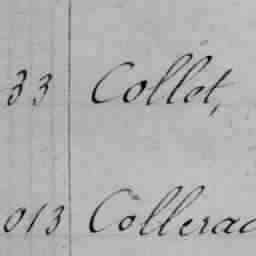 33 Collet,
013 Collerad